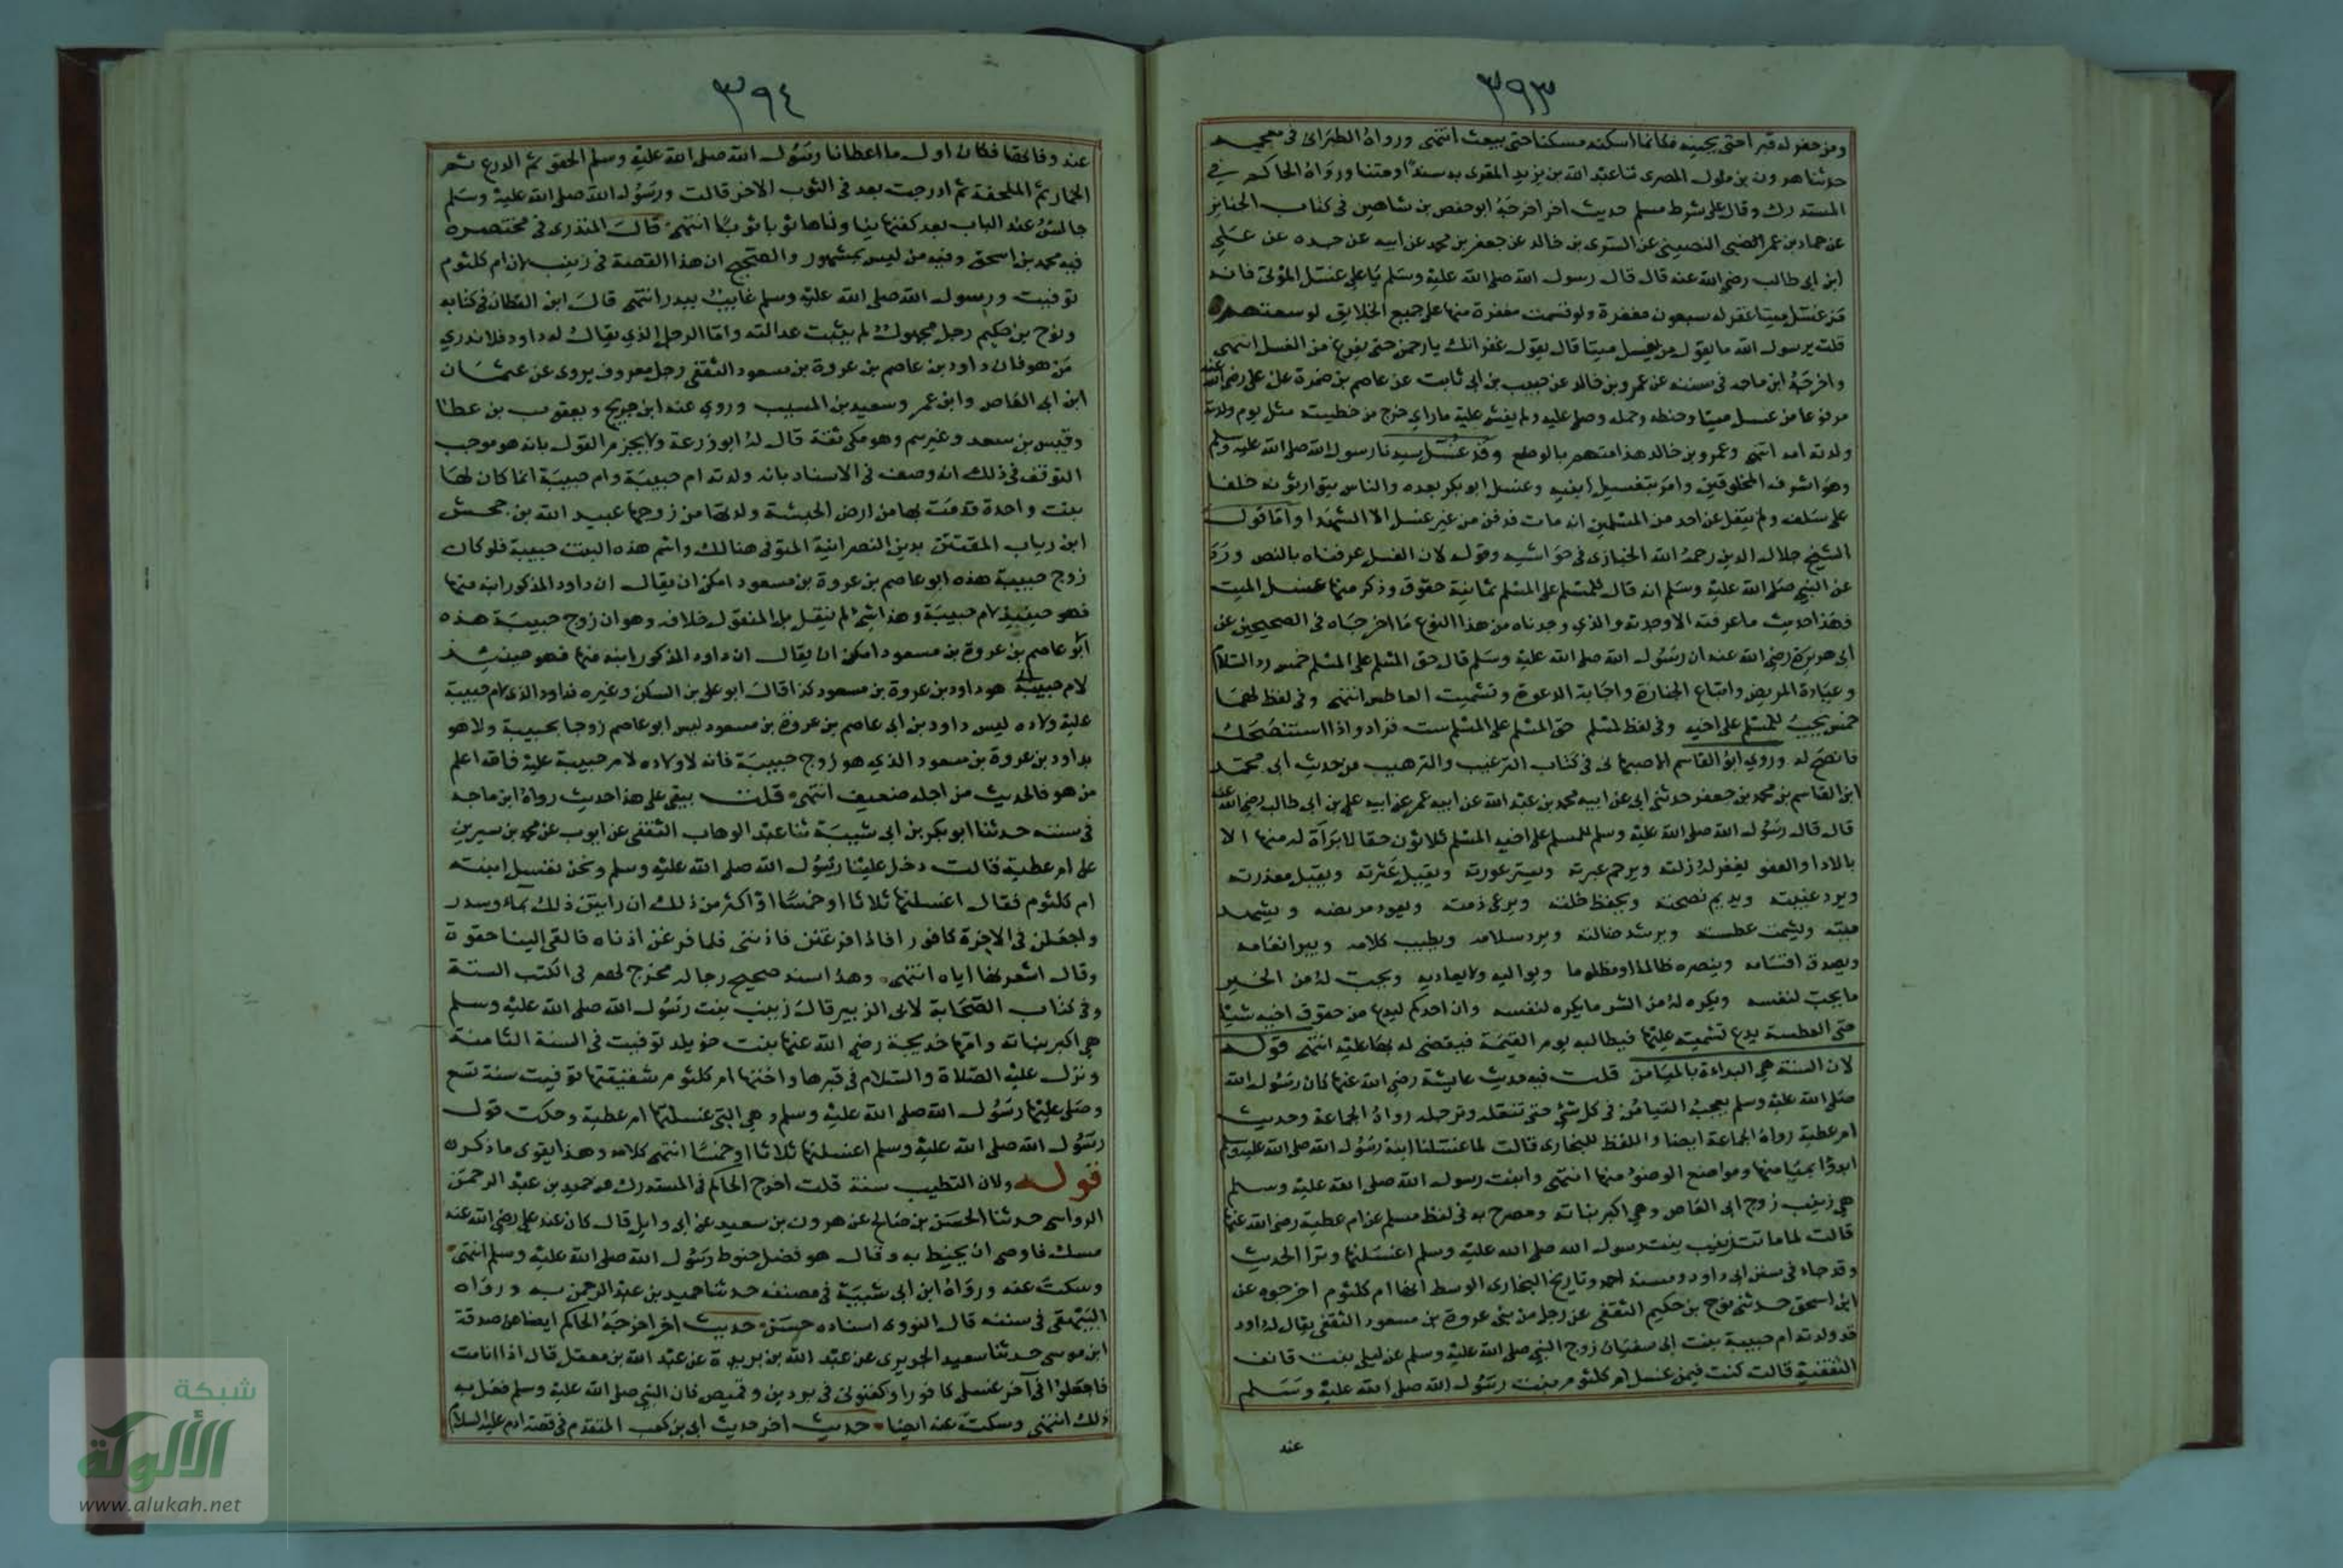 ٣٩٣
ومن حفر له قبرا حتى يجنه فكانما اسكنه مسكنا حتى يبعث انتهى ورواه الطبرانى فى معجمه
حدثنا هرون بن ملول المصرى ثنا عبد الله بن يزيد المقرى به سندا ومتنا ورواه الحاكم فى
المستدرك وقال على شرط مسلم حديث اخر اخرجه ابو حفص بن شاهين فى كتاب الجنايز
عن حماد بن عمر الضبى النصيبى عن السرى بن خالد عن جعفر بن محمد عن ابيه عن جده عن على
ابن ابى طالب رضى الله عنه قال قال رسول الله صلى الله عليه وسلم يا على غسل الموتى فانه
من غسل ميتا غفر له سبعون مغفرة ولو قسمت مغفرة منها على جميع الخلايق لوسعتهم
قلت يرسول الله ما يقول من يغسل ميتا قال يقول غفرانك يا رحمن حتى يفرغ من الغسل انتهى
واخرجه ابن ماجه فى سننه عن عمرو بن خالد عن حبيب بن ابى ثابت عن عاصم بن ضمرة عن على رضى الله عنه
مرفوعا من غسل ميتا وحنطه وحمله وصلى عليه ولم يفش عليه ما راى خرج من خطيته مثل يوم ولدته
ولدته امه انتهى وعمرو بن خالد هذا متهم بالوضع وقد غسل سيدنا رسول الله صلى الله عليه وسلم
وهو اشرف المخلوقين وامر بتغسيل ابنيه وغسل ابو بكر بعده والناس يتوارثونه خلفا
على سلف ولم ينقل عن احد من المسلمين انه مات فدفن من غير غسل الا الشهدا واما قول
الشيخ جلال الدين رحمه الله الخبازى فى حواشيه وقوله لان الغسل عرفناه بالنص ورد
عن النبى صلى الله عليه وسلم انه قال للمسلم على المسلم ثمانية حقوق وذكر منها غسل الميت
فهذا حديث ما عرفته الا وجدته والذى وجدناه من هذا النوع ما اخرجاه فى الصحيحين عن
ابى هريرة رضى الله عنه ان رسول الله صلى الله عليه وسلم قال حق المسلم على المسلم خمس رد السلام
وعيادة المريض واتباع الجنازة واجابة الدعوة وتشميت العاطس انتهى وفى لفظ لهما
خمس يجب للمسلم على اخيه وفى لفظ لمسلم حق المسلم على المسلم ست فزاد واذا استنصحك
فانصح له وروى ابو القاسم الاصبهانى فى كتاب الترغيب والترهيب من حديث ابى محمد
ابن القاسم بن محمد بن جعفر حدثنى ابى عن ابيه محمد بن عبد الله عن ابيه عمر عن ابيه على بن ابى طالب رضى الله عنه
قال قال رسول الله صلى الله عليه وسلم للمسلم على اخيه المسلم ثلاثون حقا لا براة له منها الا
بالادا او العفو يغفر له زلته ويرحم عبرته ويستر عورته ويقيل عثرته ويقبل معذرته
ويرد غيبته ويديم نصحته ويحفظ خلته ويرعى ذمته ويعود مريضه ويشهد
ميته ويشمت عطسته ويرشد ضالته ويرد سلامه ويطيب كلامه ويبر انعامه
ويصدق اقسامه وينصره ظالما او مظلوما ويواليه ولا يعاديه ويحب له من الخير
ما يحب لنفسه ويكره له من الشر ما يكره لنفسه وان احدكم ليدع من حقوق اخيه شيئا
حتى العطسة يدع تشميته عليها فيطالبه يوم القيمة فيقضى له بها عليه انتهى قوله
لان السنة هى البداءة بالميامن قلت فيه حديث عايشة رضى الله عنها كان رسول الله
صلى الله عليه وسلم يعجبه التيامن فى كل شئ حتى تنعله وترجله رواه الجماعة وحديث
ام عطية رواه الجماعة ايضا واللفظ للبخارى قالت لما غسلنا ابنة رسول الله صلى الله عليه وسلم
ابدوا بميامنها ومواضع الوضو منها انتهى وابنت رسول الله صلى الله عليه وسلم
هى زينب زوج ابى العاص وهى اكبر بناته ومصرح به فى لفظ مسلم عن ام عطية رضى الله عنها
قالت لما ماتت زينب بنت رسول الله صلى الله عليه وسلم اغسلنها وترا الحديث
وقد جاء فى سنن ابى داود ومسند احمد وتاريخ البخارى الوسط انها ام كلثوم اخرجوه عن
ابن اسحق حدثنى نوح بن حكيم الثقفى عن رجل من بنى عروة بن مسعود الثقفى يقال له داود
قد ولدته ام حبيبة بنت ابى سفيان زوج النبى صلى الله عليه وسلم عن ليلى بنت قانف
الثقفية قالت كنت فيمن غسل ام كلثوم بنت رسول الله صلى الله عليه وسلم
عند
٣٩٤
عند وفاتها فكان اول ما اعطانا رسول الله صلى الله عليه وسلم الحقو ثم الدرع ثم
الخمار ثم الملحفة ثم ادرجت بعد فى الثوب الاخر قالت ورسول الله صلى الله عليه وسلم
جالس عند الباب معه كفنها يناولناها ثوبا ثوبا انتهى قال المنذرى فى مختصره
فيه محمد بن اسحق وفيه من ليس بمشهور والصحيح ان هذا القصة فى زينب لان ام كلثوم
توفيت ورسول الله صلى الله عليه وسلم غايب ببدر انتهى قال ابن القطان فى كتابه
ونوح بن حكيم رجل مجهول لم يثبت عدالته واما الرجل الذى يقال له داود فلا ندرى
من هو فان داود بن عاصم بن عروة بن مسعود الثقفى رجل معروف يروى عن عثمان
ابن ابى العاص وابن عمر وسعيد بن المسيب وروى عنه ابن جريج ويعقوب بن عطا
وقيس بن سعد وغيرهم وهو مكى ثقة قال له ابو زرعة ولا يجزم القول بانه هو موجب
التوقف فى ذلك انه وصف فى الاسناد بانه ولدته ام حبيبة وام حبيبة انما كان لها
بنت واحدة قدمت بها من ارض الحبشة ولدتها من زوجها عبيد الله بن جحش
ابن رياب المفتتن بدين النصرانية المتوفى هنالك واسم هذه البنت حبيبة فلو كان
زوج حبيبة هذه ابو عاصم بن عروة بن مسعود امكن ان يقال ان داود المذكور ابنه منها
فهو حينيذ لام حبيبة وهذا شئ لم ينقل بل المنقول خلافه وهو ان زوج حبيبة هذه
ابو عاصم بن عروة بن مسعود امكن ان يقال ان داود المذكور ابنه منها فهو حينيذ
لام حبيبة هو داود بن عروة بن مسعود كذا قال ابو على بن السكن وغيره فداود الذى لام حبيبة
عليه ولاده ليس داود بن ابى عاصم بن عروة بن مسعود ليس ابو عاصم زوجا بحبيبة ولا هو
بداود بن عروة بن مسعود الذى هو زوج حبيبة فانه لا ولاده لام حبيبة عليه فالله اعلم
من هو فالحديث من اجله ضعيف انتهى قلت يبقى على هذا حديث رواه ابن ماجه
فى سننه حدثنا ابو بكر بن ابى شيبة ثنا عبد الوهاب الثقفى عن ايوب عن محمد بن سيرين
على ام عطية قالت دخل علينا رسول الله صلى الله عليه وسلم ونحن نغسل ابنته
ام كلثوم فقال اغسلنها ثلاثا او خمسا او اكثر من ذلك ان رايتن ذلك بماء وسدر
واجعلن فى الاخرة كافورا فاذا افرغتن فاذننى فلما فرغن اذناه فالقى الينا حقوة
وقال اشعرنها اياه انتهى وهذا سند صحيح رجاله مخرج لهم فى الكتب الستة
وفى كتاب الصحابة لابى الزبير قال زينب بنت رسول الله صلى الله عليه وسلم
هى اكبر بناته وامها خديجة رضى الله عنها بنت خويلد توفيت فى السنة الثامنة
ونزل عليه الصلاة والسلام فى قبرها واختها ام كلثوم شقيقتها توفيت سنة تسع
وصلى عليها رسول الله صلى الله عليه وسلم وهى التى غسلتها ام عطية وحكت قول
رسول الله صلى الله عليه وسلم اغسلنها ثلاثا او خمسا انتهى كلامه وهذا يقوى ما ذكره
قوله ولان التطيب سنة قلت اخرج الحاكم فى المستدرك عن حميد بن عبد الرحمن
الرواسى حدثنا الحسن بن صالح عن هرون بن سعيد عن ابى وايل قال كان عند على رضى الله عنه
مسك فاوصى ان يحنط به وقال هو فضل حنوط رسول الله صلى الله عليه وسلم انتهى
وسكت عنه ورواه ابن ابى شيبة فى مصنفه حدثنا حميد بن عبد الرحمن به ورواه
البيهقى فى سننه قال النووى اسناده حسن حديث اخر اخرجه الحاكم ايضا عن صدقة
ابن موسى حدثنا سعيد الجريرى عن عبد الله بن بريدة عن عبد الله بن مغفل قال اذا انا مت
فاجعلوا فى آخر غسلى كافورا وكفنونى فى بردين وقميص فان النبى صلى الله عليه وسلم فعل به
ذلك انتهى وسكت عنه ايضا حديث اخر حديث ابى بن كعب المتقدم فى قصة ادم عليه السلام
شبكة
الألوكة
www.alukah.net